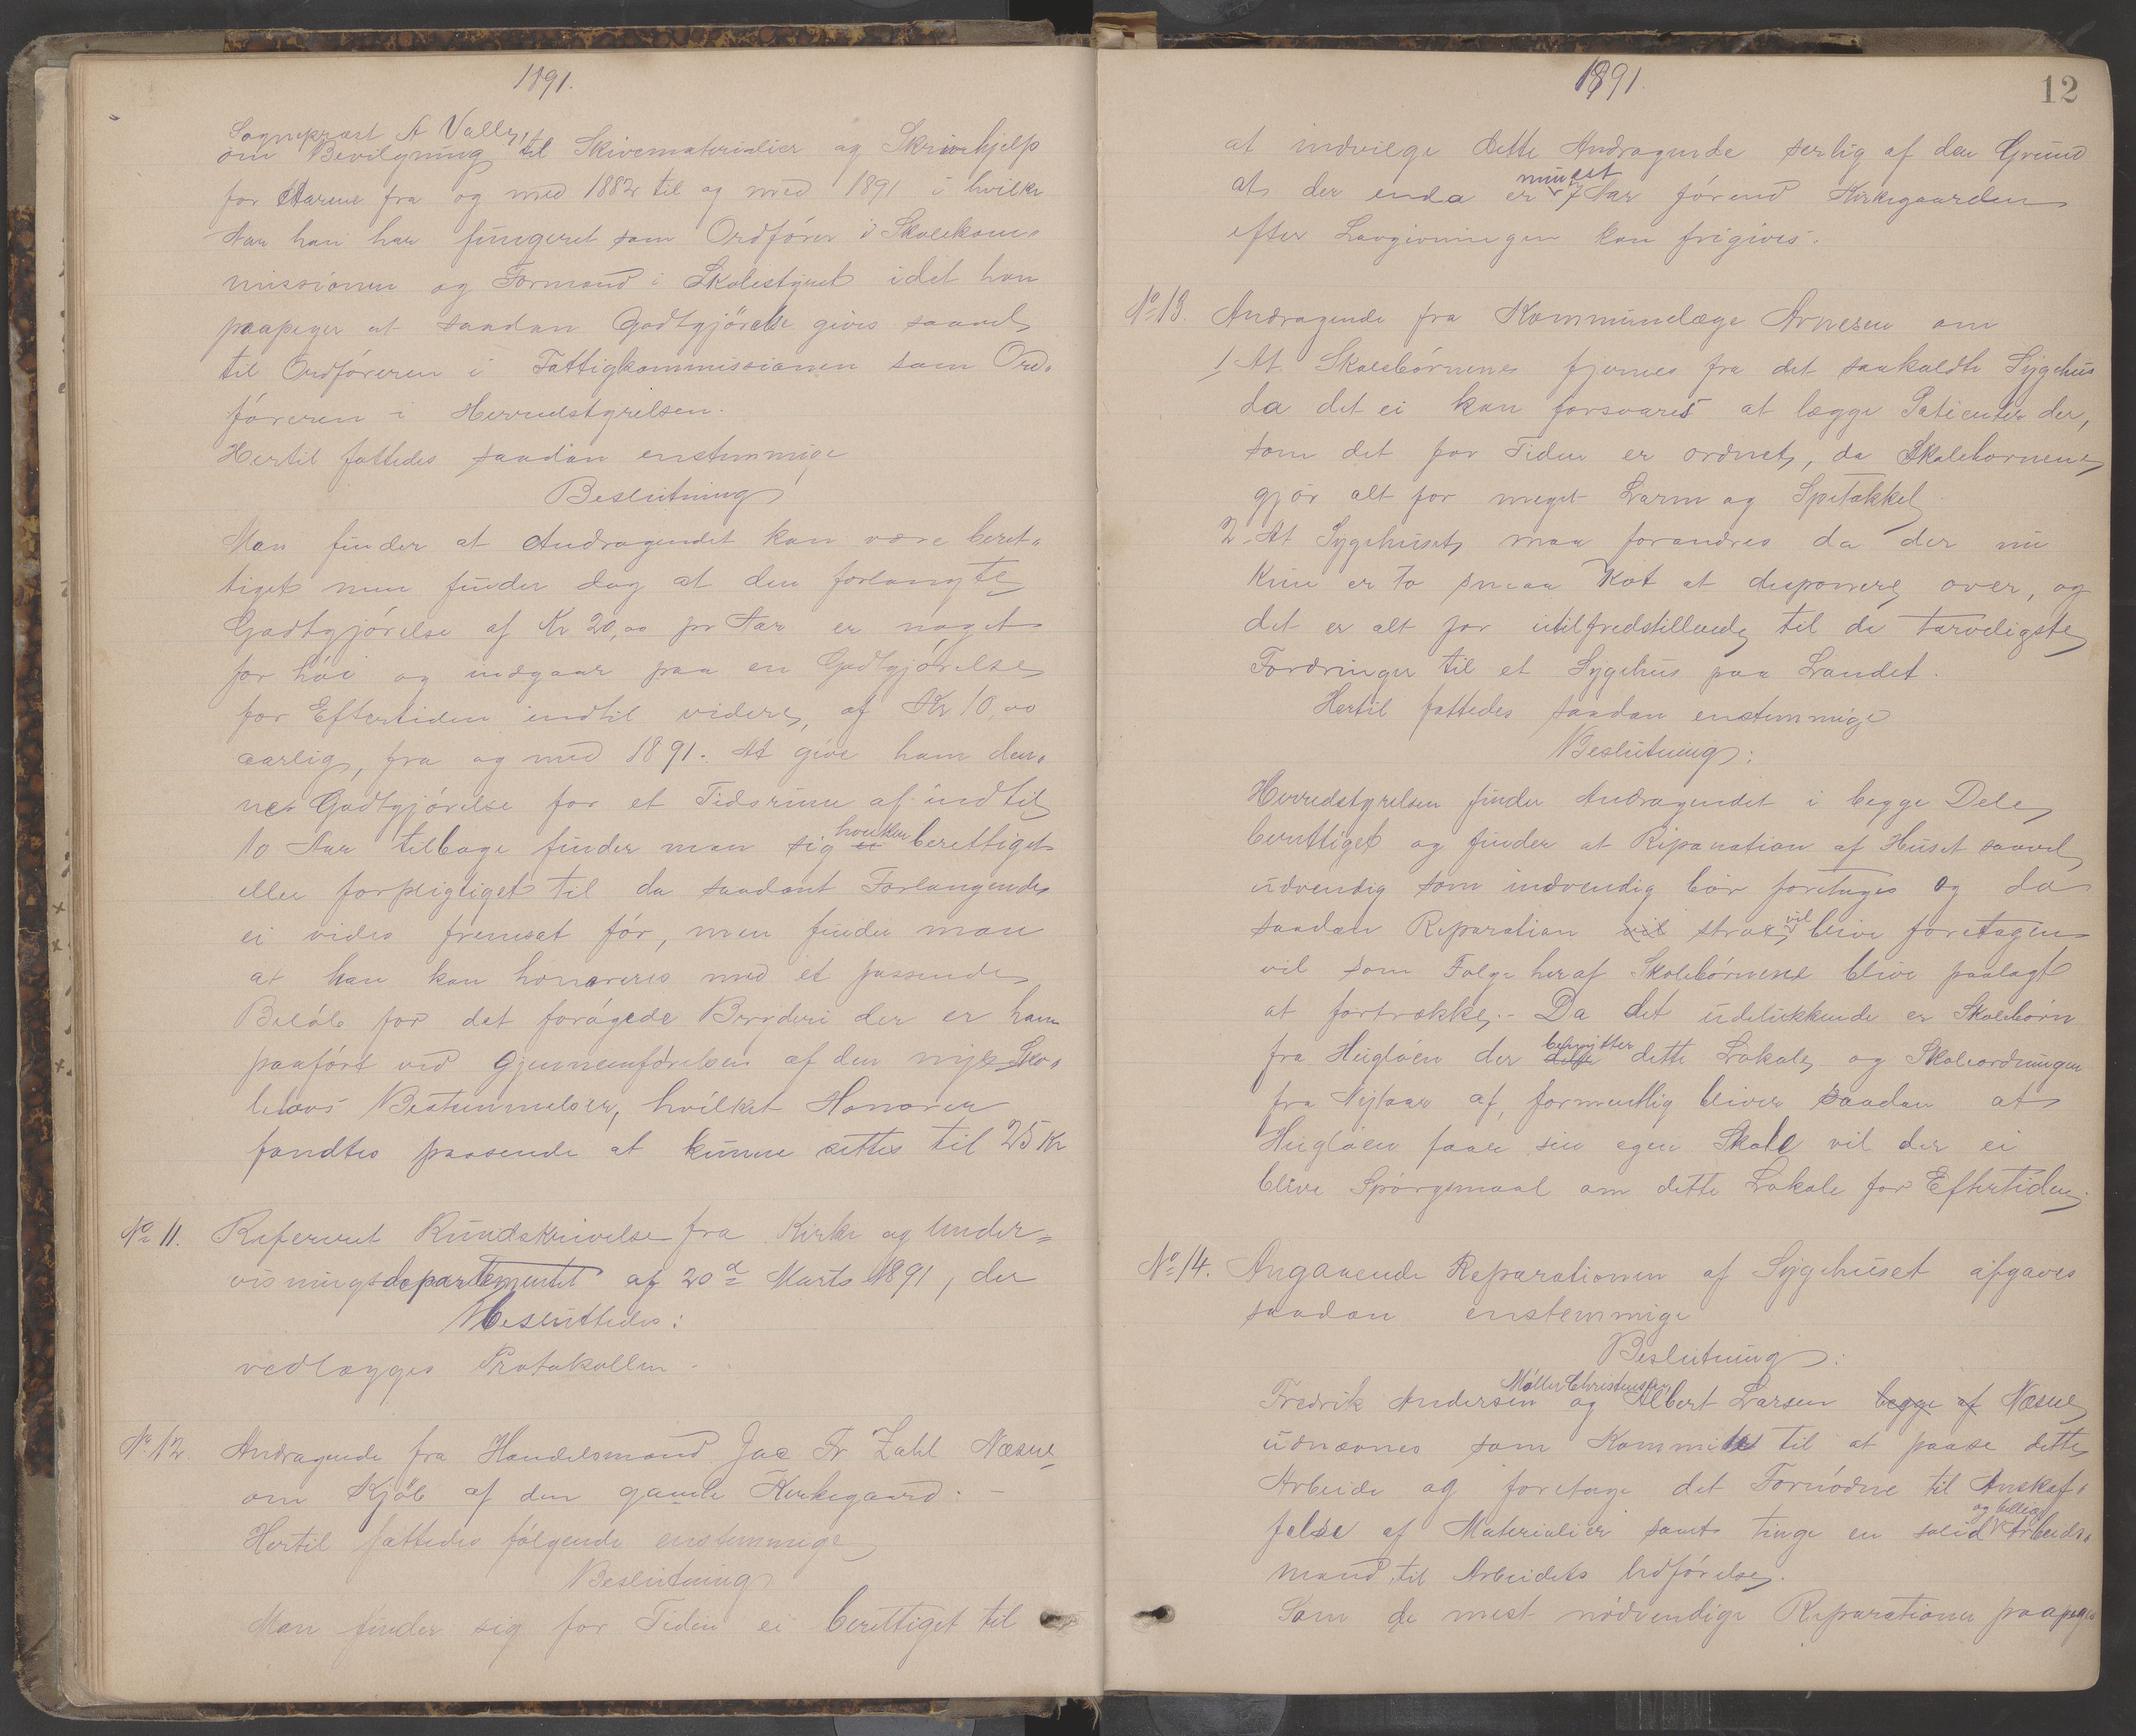 1891.
Sognepræst A Valle,
om Bevilgning til Skivematerialier og Skrivehjelp
for Aarene fra og med 1882 til og med 1891 i hvilke
Aar han har fungeret som Ordfører i Skolekom-
missionen og Formand i Skolestyret idet han
paapeger at saadan Godtgjörelse gives saavel
til Ordföreren i Fattigkommissionen som Ord-
föreren i Herredstyrelsen.
Hertil fattedes saadan enstemmige
Beslutning
Man finder at Andragendet kan være beret-
tiget men finder dog at den forlangte
Godtgjörelse af Kr 20,00 pr Aar er noget
for höi og indgaar paa en Godtgjörelse
for Eftertiden indtil videre, af Kr 10,00
aarlig, fra og med 1891. At give ham den-
ne Godtgjörelse for et Tidsrum af indtil
10 Aar tilbage finder man sig ei hverken berettiget
eller forpligtiget til da saadant Forlangende
ei vides fremsat för, men finder man
at han kan honoreres med et passende
Belöb for det forögede Bryderi der er ham
paafört ved Gjennemförelsen af den nye Sko-
lelovs Bestemmelser, hvilket Honorar
fandtes passende at kunne settes til 25 Kr
No 11. Refereret Rundskrivelse fra Kirke og Under-
visningsdepartementet af 20d Marts 1891, der
Besluttedes:
vedlægges Protokollen.
No 12. Andragende fra Handelsmand Jac Fr Zahl Næsne
om Kjöb af den gamle Kirkegaard. -
Hertil fattedes fölgende enstemmige
Beslutning
Man finder sig for Tiden ei berettiget til
1891.
12
at indvilge dette Andragende serlig af den Grund
at der enda er mindst 7 Aar förend Kirkegaarden
efter Lovgivningen kan frigives.
No 13. Andragende fra Kommunelæge Arnesen om
1 At Skolebörnene fjernes fra det saakaldte Sygehus
da det ei kan forsvares at lægge Patienter der,
som det for Tiden er ordnet, da Skolebornene
gjör alt for meget Larm og Spetakkel
2. At Sygehuset maa forandres da der nu
kun er to smaa Kot at disponere over, og
det er alt for utilfredstillende til de tarveligste
Fordringer til et Sygehus paa Landet.
Hertil fattedes saadan enstemmige
Beslutning:
Herredstyrelsen finder Andragendet i begge Dele
berettiget og finder at Reparation af Huset saavel
udvendig som indvendig bör foretages og da
saadan Reparation vil strax vil blive foretagen
vil som Folge heraf Skolebörnene blive paalagt
at fortrække. - Da det udelukkende er Skolebörn
fra Hugløen der dette benytter dette Lokale og Skoleordningen
fra Nytaar af, formentlig bliver saadan at
Hugløen faar sin egen Skole vil der ei
blive Spörgsmaal om dette Lokale for Eftertiden.
No 14. Angaaende Reparationen af Sygehuset afgaves
saadan enstemmige
Beslutning:
Fredrik Andersen Möller Christensen og Albert Larsen begge af Næsne
udnævnes som Kommite til at paase dette
Arbeide og foretage det Fornödne til Anskaf-
felse af Materialier samt tinge en solid og billig Arbeids-
mand til Arbeidets Udförelse.
Som de mest nödvendige Reparationer paapeges